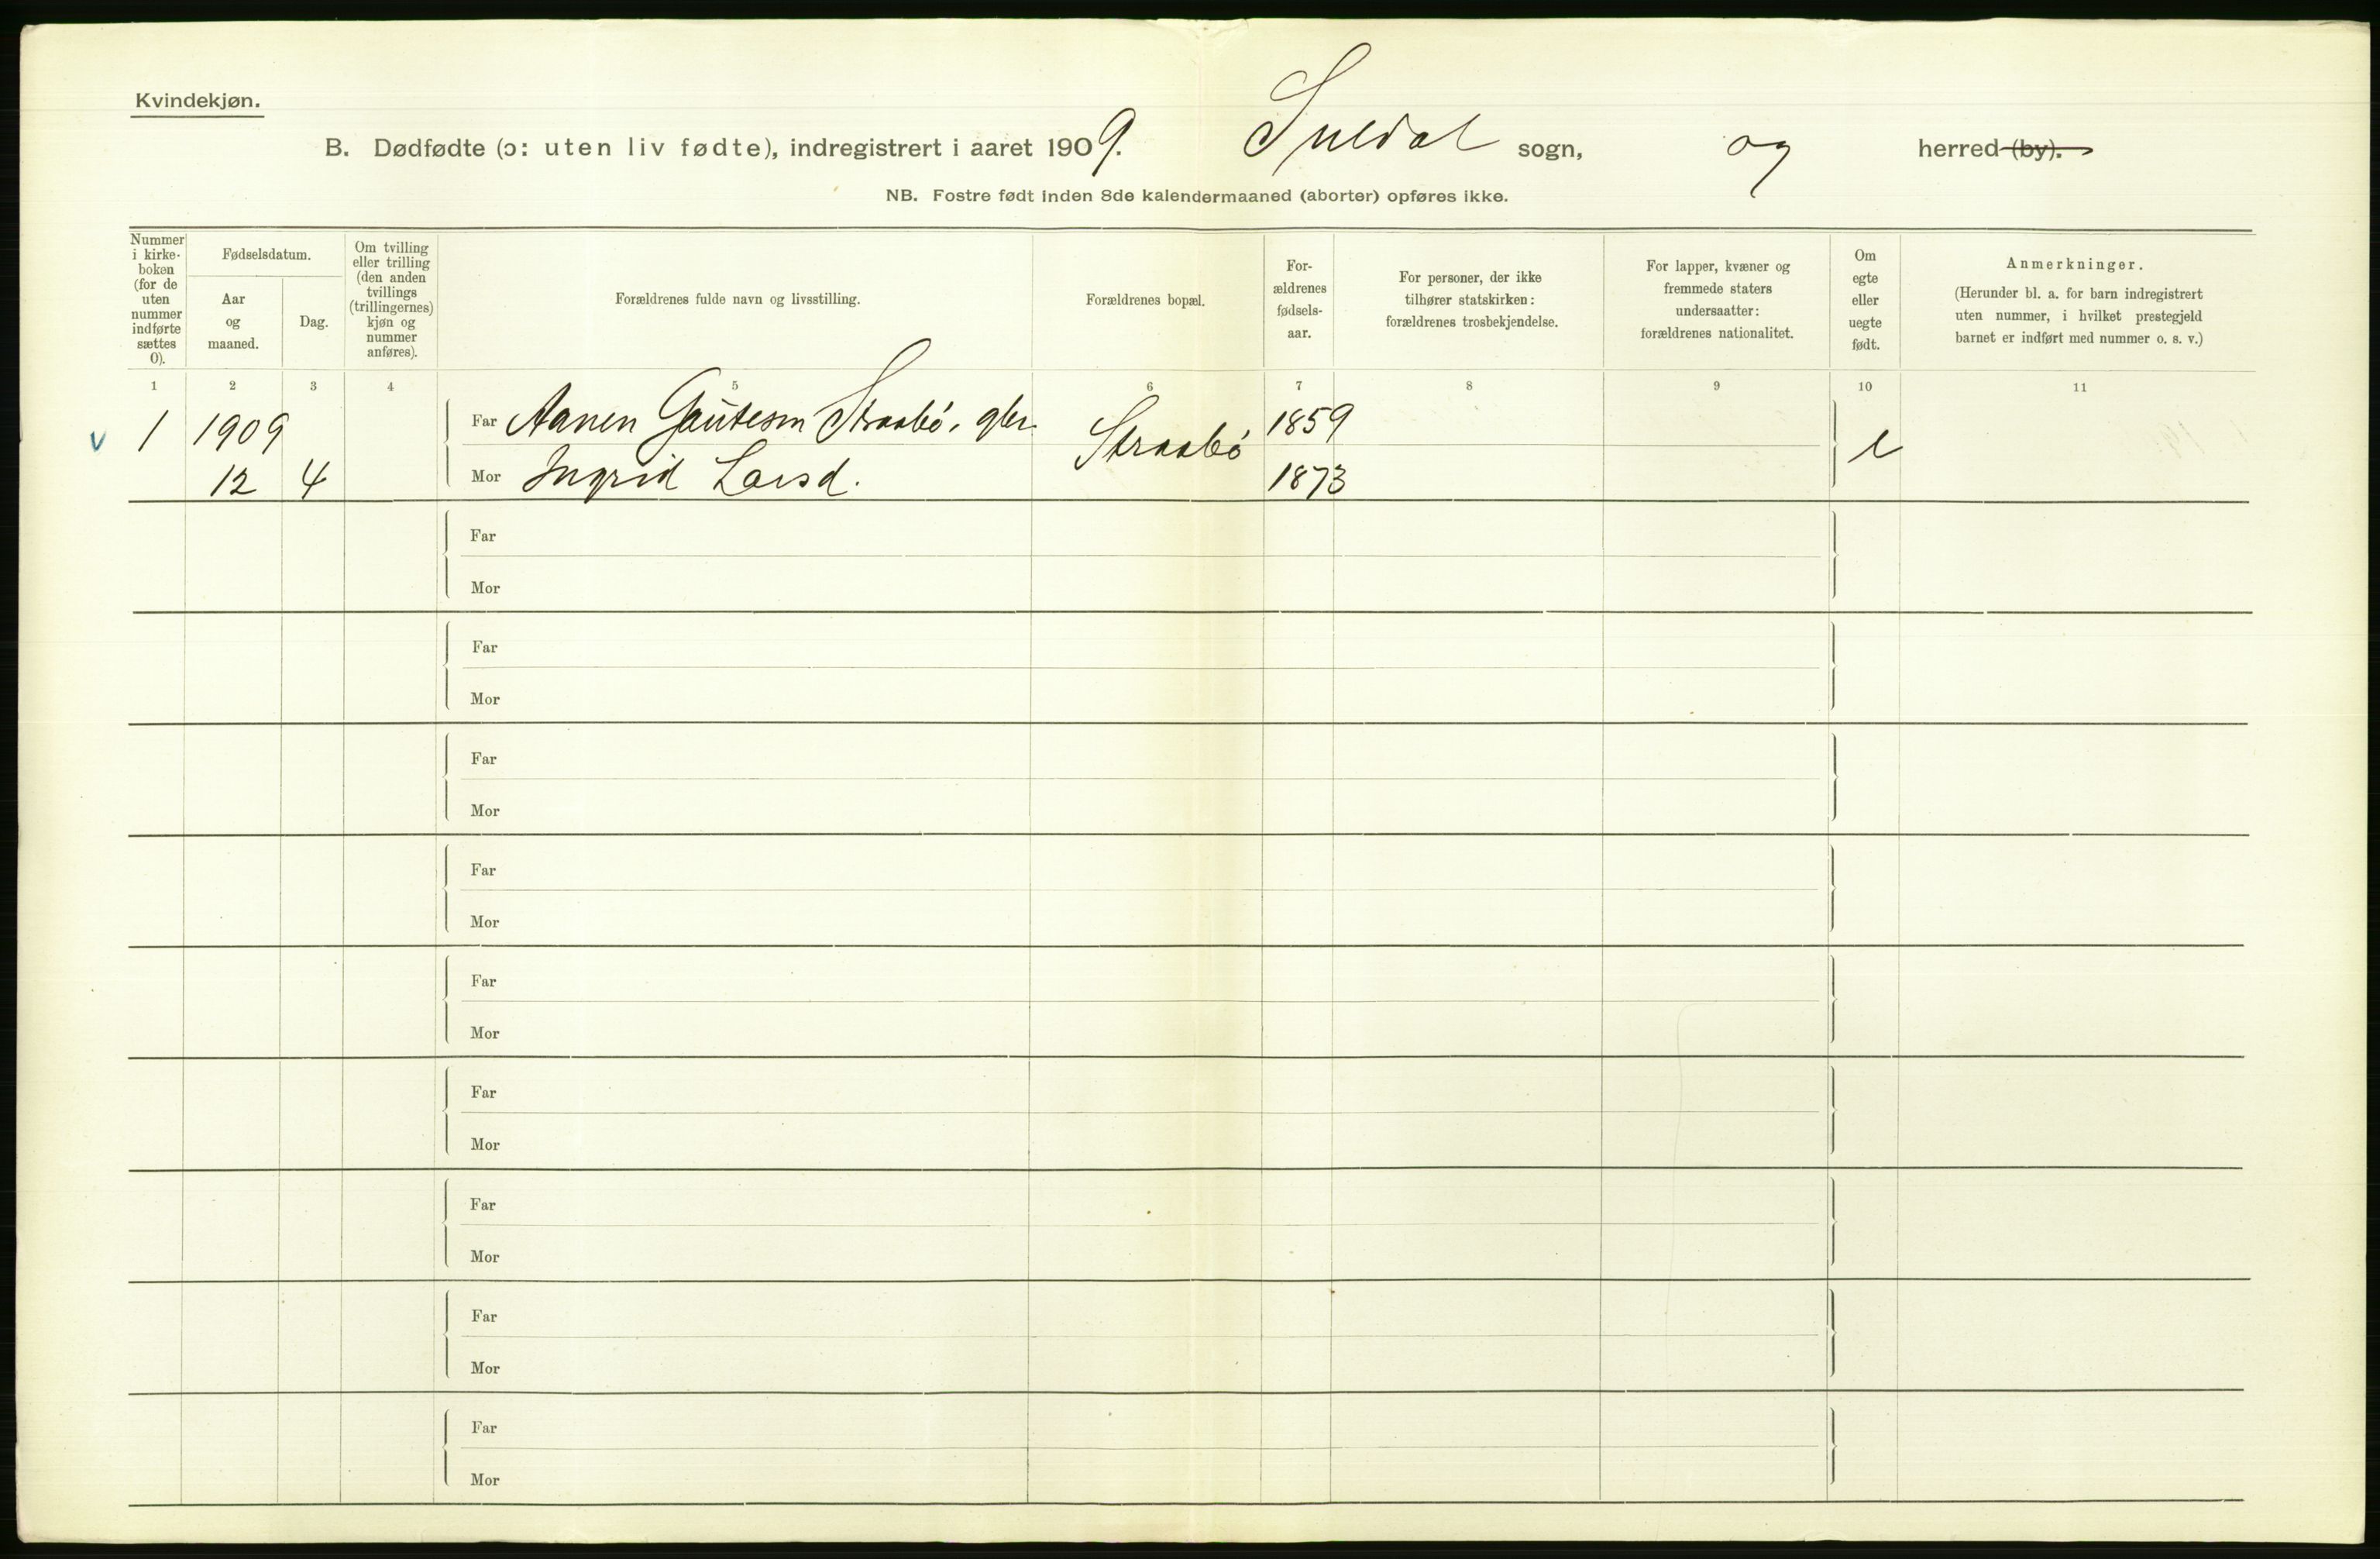 Kvindekjøn.
B. Dødfødte (ɔ: uten liv fødte), indregistrert i aaret 1909. Suldal sogn, og herred (by).
NB. Fostre født inden 8de kalendermaaned (aborter) opføres ikke.
Nummer i kirke-boken (for de uten nummer indførte sættes 0).
Fødselsdatum.
Aar og maaned.
Dag.
Om tvilling eller trilling (den anden tvillings (trillingernes) kjøn og nummer anføres).
Forældrenes fulde navn og livsstilling.
Forældrenes bopæl.
For-ældrenes fødsels-aar.
For personer, der ikke tilhører statskirken: forældrenes trosbekjendelse.
For lapper, kvæner og fremmede staters undersaatter: forældrenes nationalitet.
Om egte eller uegte født.
Anmerkninger.
(Herunder bl. a. for barn indregistrert uten nummer, i hvilket prestegjeld barnet er indført med nummer o. s. v.)
1 2 3 4 5 6 7 8 9 10 11
v 1 1909 Far Aanen Gautesen Straabø, gbr. Straabø 1859 e
12 4 Mor Ingrid Larsd. 1873
Far
Mor
Far
Mor
Far
Mor
Far
Mor
Far
Mor
Far
Mor
Far
Mor
Far
Mor
Far
Mor